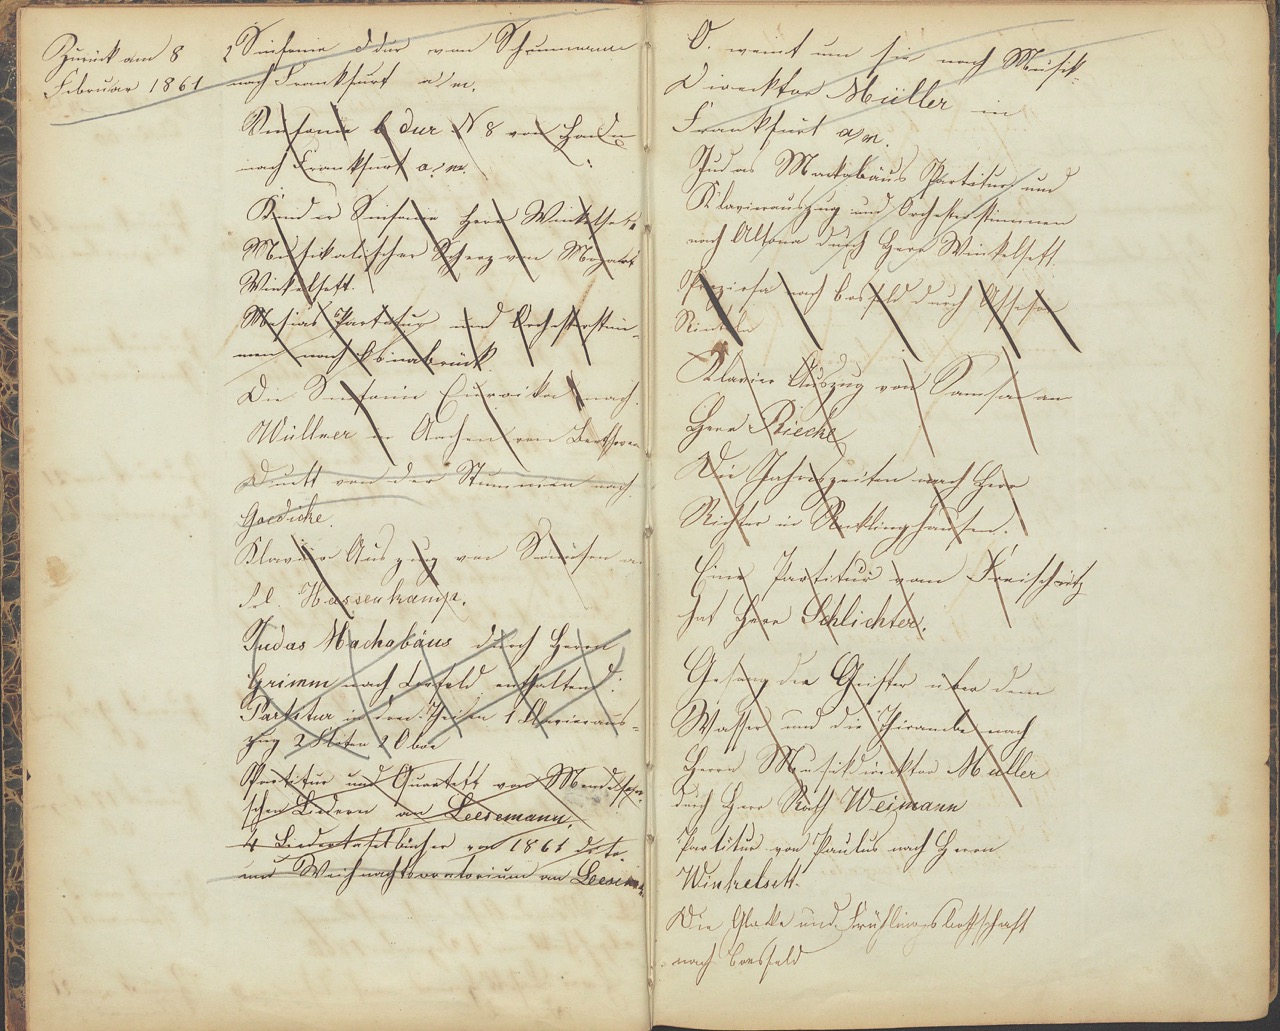 Zurück am 8
Februar 1861
2 Sinfonie D dur von Schumann
nach Frankfurt a/m.
Sinfonie b dur N 8 von Haydn
nach Frankfurt a/m.
Kinder Sinfonie Herr Winkelsett
Musikalischer Scherz von Mozart
Winkelsett.
Mesias Partitur und Orchesterstim-
men nach Osnabrück.
Die Sinfonie Euroika nach
Wüllner in Aachen von Beethoven
Duett von der Stummen nach
Goedicke.
Klavier Auszug von Samsen an
Frl. Hassenkamp.
Judas Machabäus durch Herrn
Grimm nach enthaltend:
Partitur in drei Theilen 1 Klavieraus-
zug 2 Flöten 2 Oboe
Partitur und Quartett von Mendelsohn-
schen Liedern an Leesemann.
4 Liedertafelbücher von 1861 dito
und Weihnachtsoratorium an Leesem.
O. weint um sie nach Musik-
Direcktor Müller in
Frankfurt a/m.
Judas Mackabäus Partitur und
Klavierauszug und Orchesterstimmen
nach Altona durch Herr Winkelsett
nach Cosfeld durch Assesor
Rinteln
Klavier Auszug von Samson an
Herr Riecke
Die Jahreszeiten nach Herr
Richter in Recklinghausen.
Eine Partitur vom Freischütz
hat Herr Schlichter.
Gesang der Geister über dem
Wasser und die nach
Herrn Musikdirecktor Müller
durch Herr Rath Weimann
Partitur von Paulus nach Herrn
Winkelsett.
Die Glocke und Frühlingsbotschaft
nach Coesfeld